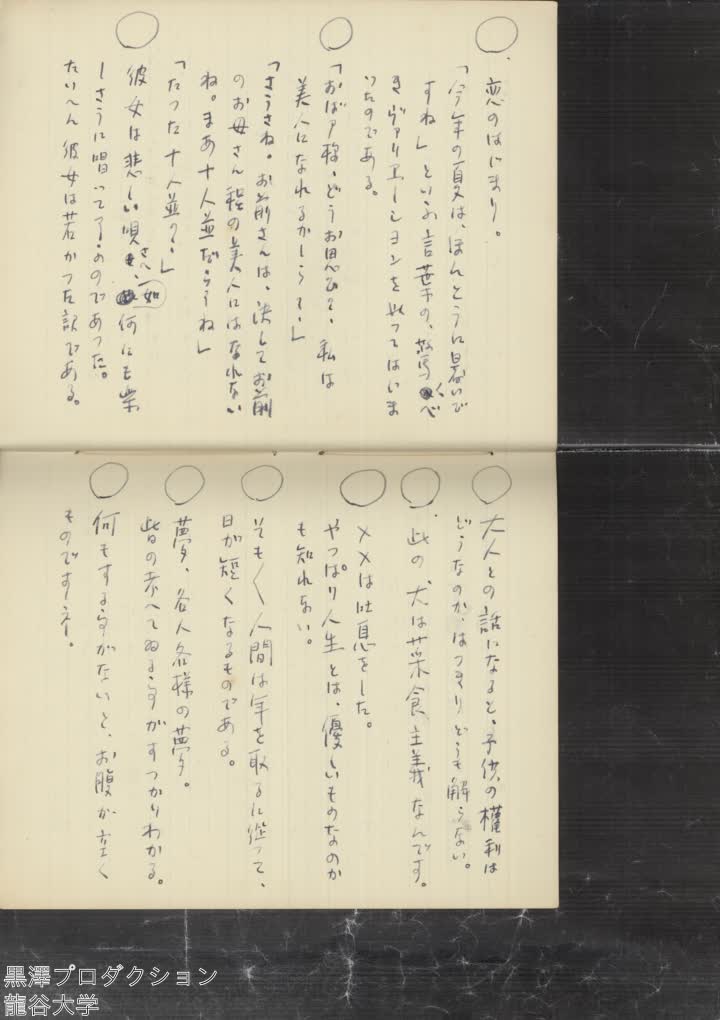 ○
恋のはじまり。
「今年の夏は、ほんとうに暑いで
すね」といふ言葉の、驚くべ
きヴァリエーションを以つてはじま
つたのである。
○
「おばア様、どうお思ひ?、私は
美人になれるかしら?」
「さうさね。お前さんは、決してお前
のお母さん程の美人にはなれない
ね。まあ十人並だらうね」
「たつた十人並?」
○
彼女は悲しい唄さへ、如何にも楽
しさうに唱つて了ふのであつた。
たいへん彼女は若かつた訳である。
○
大人との話になると、子供の權利は
どうなのか、はつきりどうも解らない。
○
此の、犬は菜食主義なんです。
○
××は吐息をした。
やつぱり人生とは、優しいものなのか
も知れない。
○
そもそも人間は年を取るに從つて、
日が短くなるものである。
○
夢、各人各様の夢。
皆の考へてゐる事がすつかりわかる。
○
何もする事がないと、お腹が空く
ものですネー。
黒澤プロダクション
龍谷大学